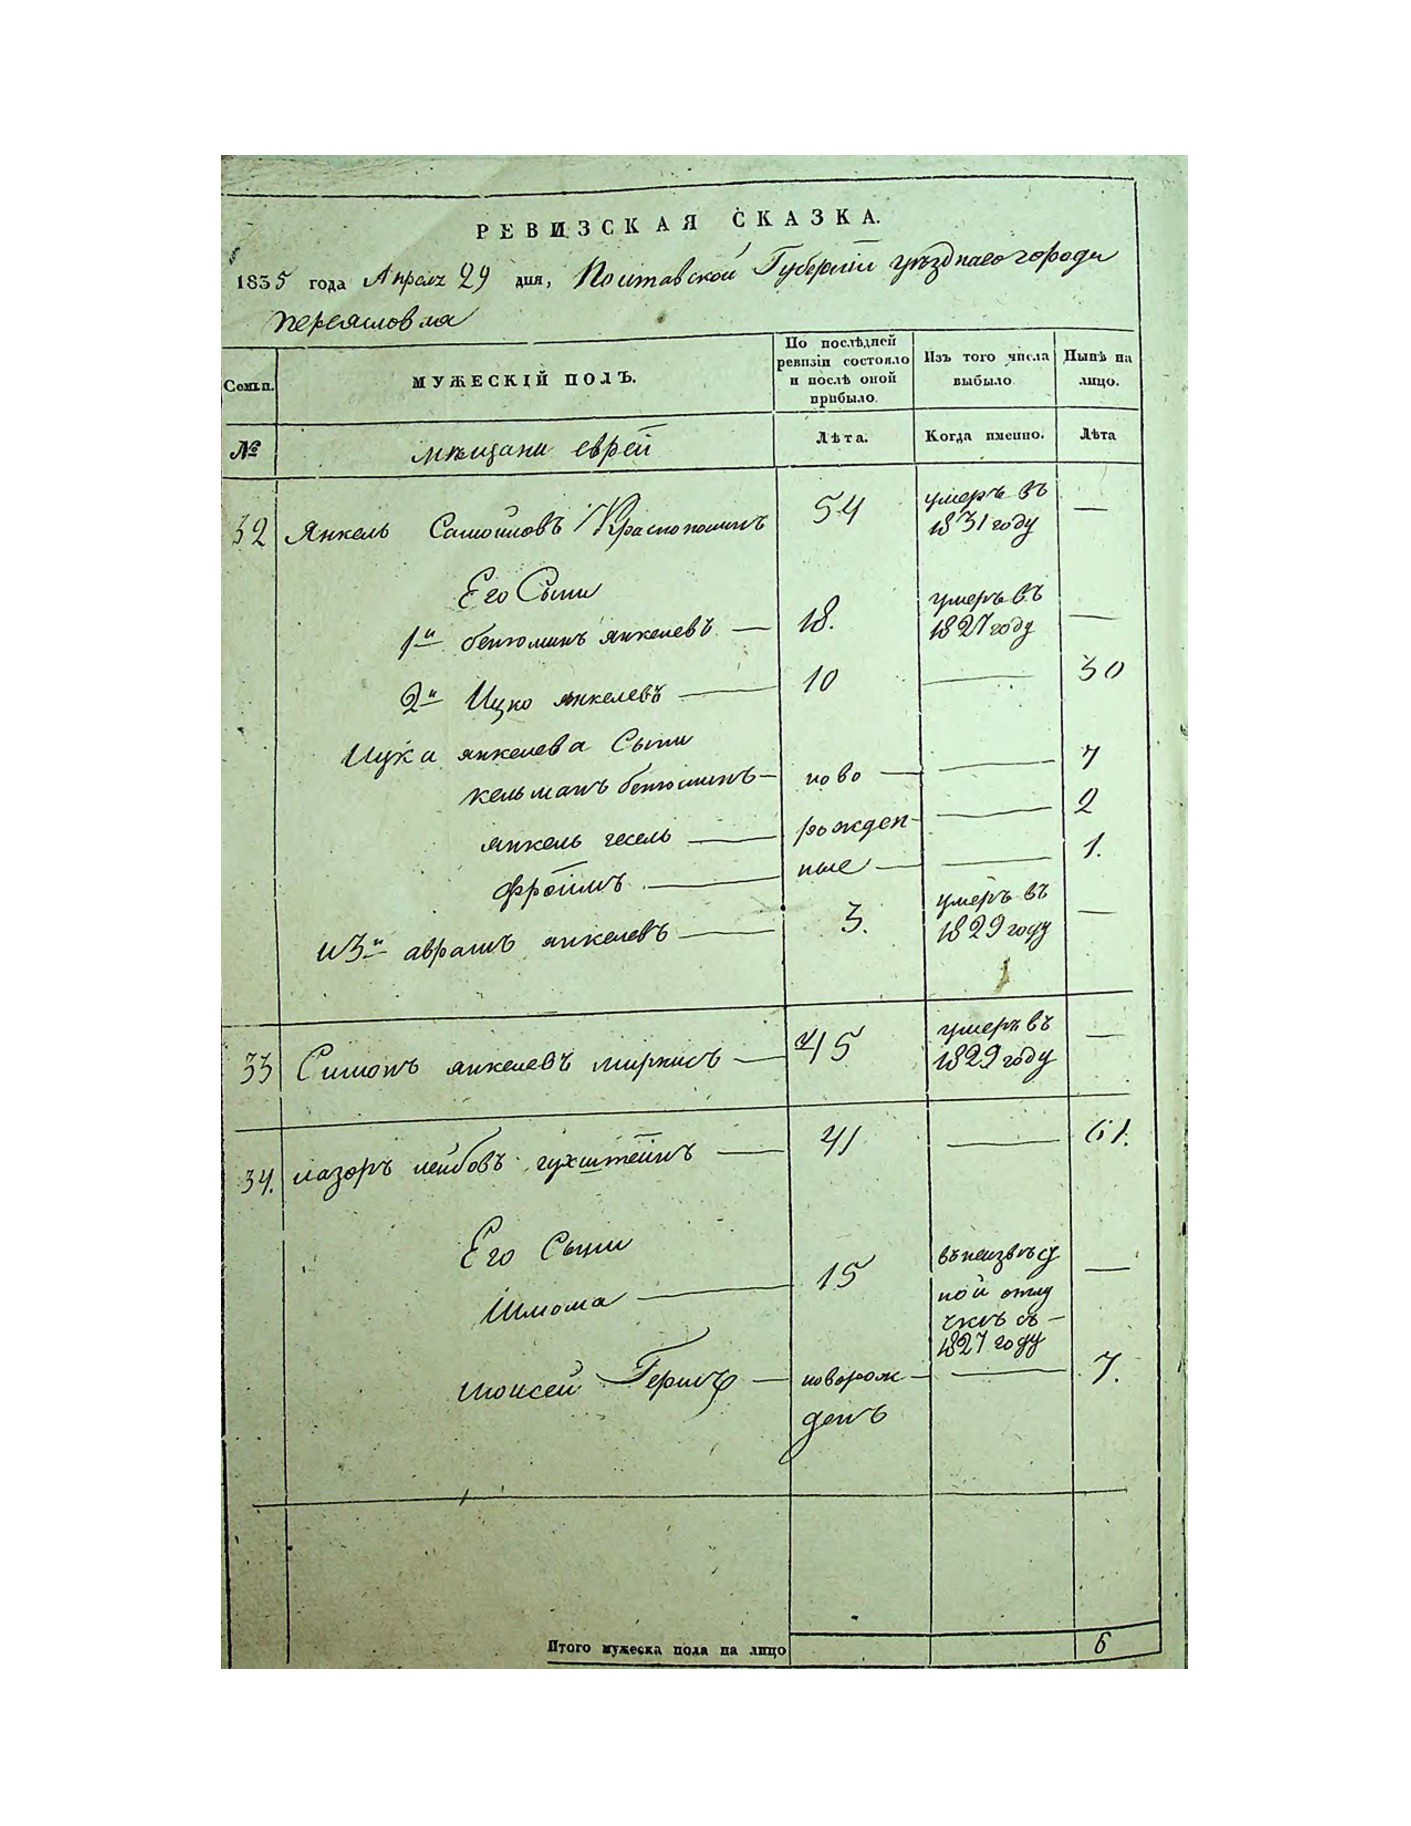 РЕВИЗСКАЯ СКАЗКА.
1835 года Апреля 29 дня, Полтавской Губернiи уѣзднаго города
переяслов ля
Семьи. МУЖЕСКIЙ ПОЛЪ. По послѣдней ревизiи состояло и послѣ оной прибыло. Изъ того числа выбыло Нынѣ на лицо.
№ мѣщани еврей Лѣта. Когда именно. Лѣта
32 Янкель Самойловъ Краснопольскъ 54 умеръ въ 1831 году —
Его Сыни
1й бенюминъ янкелевъ — 18. умеръ въ 1827 году —
2й Ицко янкелевъ — 10 — 30
Ицка янкелева Сыни
кельманъ бенюминъ — ново — — 7
янкель гесель — рожден — 2
фроимъ — ные — — 1.
и 3й аврамъ янкелевъ — 3. умеръ въ 1829 году —
33 Симонъ янкелевъ миркисъ — 45 умеръ въ 1829 году —
34. лазоръ лейбовъ гухштейнъ — 41 — 61.
Его Сыни
Шлома — 15 въ неизвѣст ной отлу чкѣ съ — 1827 году —
моисей Гершъ — новорож — — 7.
денъ
Итого мужеска пола на лицо 6